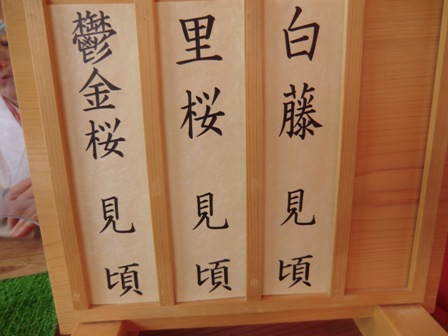 白藤 見頃
里桜 見頃
鬱金桜 見頃